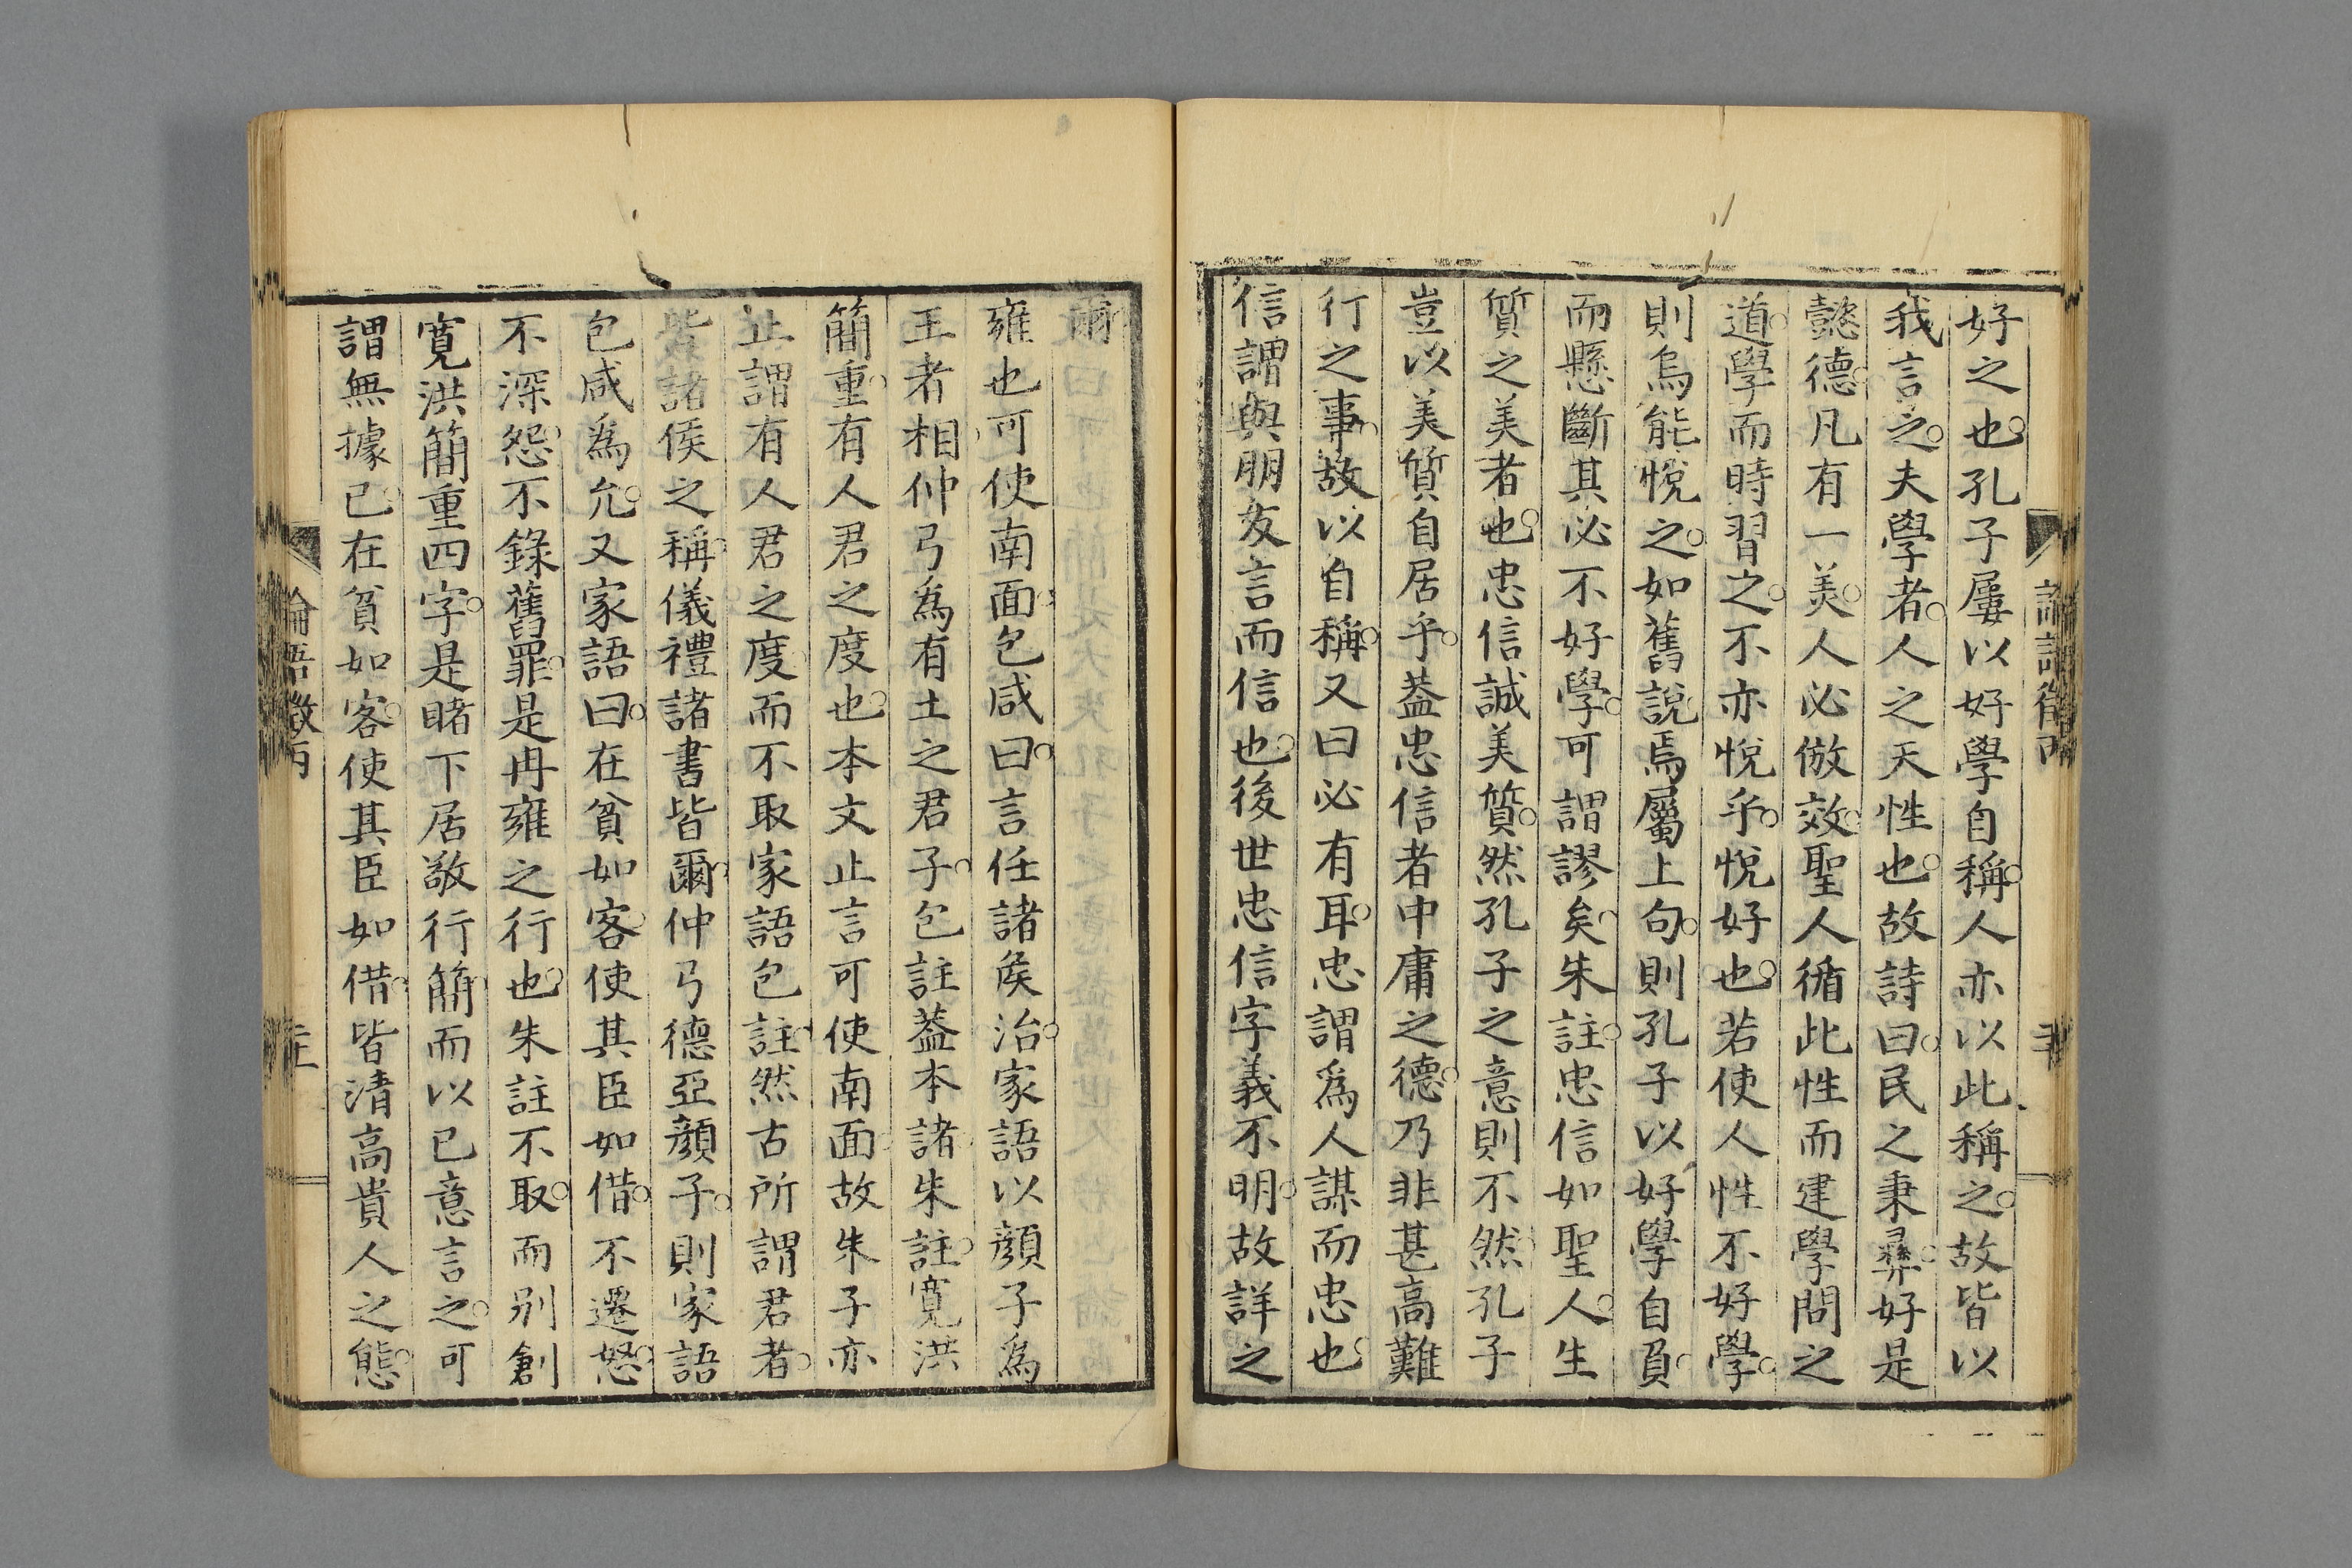 好之也孔子屢以好學自稱人亦以此稱之故皆以
我言之夫學者人之天性也故詩曰民之秉彝好是
懿德凡有一美人必倣效聖人循此性而建學問之
道學而時習之不亦悅乎悅好也若使人性不好學
則烏能悅之如舊說焉屬上句則孔子以好學自負
而懸斷其必不好學可謂謬矣朱註忠信如聖人生
質之美者也忠信誠美質然孔子之意則不然孔子
豈以美質自居乎蓋忠信者中庸之德乃非甚高難
行之事故以自稱又曰必有耳忠謂爲人謀而忠也
信謂與朋友言而信也後世忠信字義不明故詳之
爾
雍也可使南面包咸曰言任諸侯治家語以顔子爲
王者相仲弓爲有土之君子包註蓋本諸朱註寬洪
簡重有人君之度也本文止言可使南面故朱子亦
止謂有人君之度而不取家語包註然古所謂君者
皆諸侯之稱儀禮諸書皆爾仲弓德亞顔子則家語
包咸爲允又家語曰在貧如客使其臣如借不遷怒
不深怨不錄舊罪是冉雍之行也朱註不取而別創
寬洪簡重四字是睹下居敬行簡而以已意言之可
謂無據已在貧如客使其臣如借皆清高貴人之態
論語徵丙